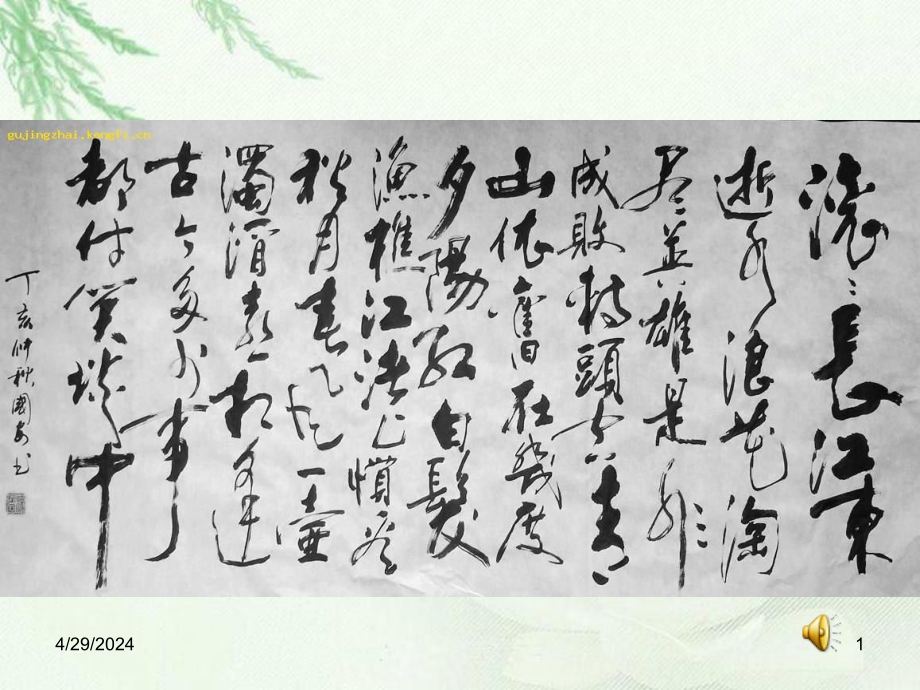 gujingzhai.kongfz.cn
滚〻長江東
逝水浪花淘
尽英雄是非
成敗轉頭空青
山依舊在幾度
夕陽紅白髮
漁樵江渚上慣看
秋月春風一壺
濁酒喜相逢
古今多少事
都付笑談中
丁亥仲秋國安书
4/29/2024
1